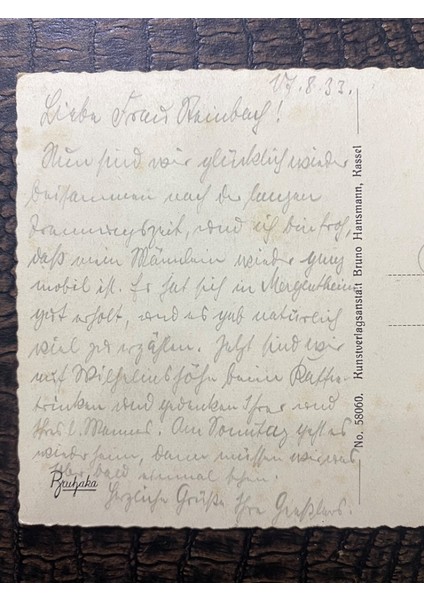 17.8.33.
Liebe Frau Reinbach!
Nun sind wir glücklich wieder
beisammen nach der langen
Trennungszeit, und ich bin froh,
daß mein Männlein wieder ganz
mobil ist. Er hat sich in Mergentheim
gut erholt, und es gab natürlich
viel zu erzählen. Jetzt sind wir
auf Wilhelmshöhe beim Kaffee-
trinken und gedenken Ihrer und
Ihres l. Mannes. Am Sonntag geht es
wieder heim, dann müssen wir uns
aber bald einmal sehen.
Herzliche Grüße Ihre
Bruhaka
No. 58060. Kunstverlagsanstalt Bruno Hansmann, Kassel